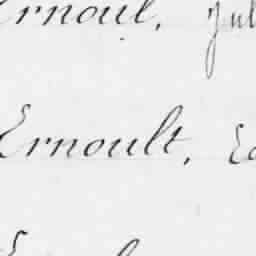 Ernoul, Jul
Ernoult, Ed